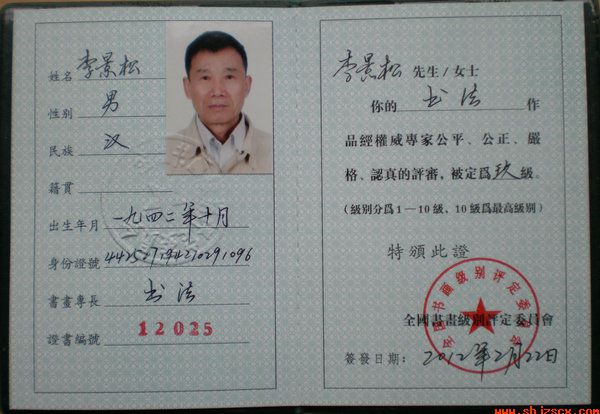 姓名 李景松
性别 男
民族 汉
籍貫
出生年月 一九四二年十月
身份證號 442527194210291096
書畫專長 书法
證書編號 12025
李景松 先生/女士
你的 书法 作
品經權威專家公平、公正、嚴
格、認真的評審，被定爲 玖 級。
（級别分爲1—10級，10級爲最高級别）
特頒此證
全國書畫級别評定委員會
簽發日期：2012年2月22日
全国书画级别评定委员会
www.sbjzscx.com